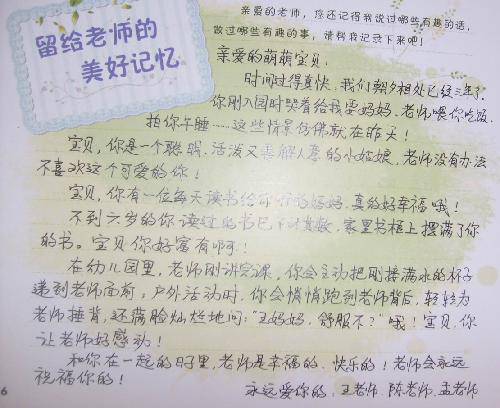 留给老师的
美好记忆
亲爱的老师，您还记得我说过哪些有趣的话，
做过哪些有趣的事，请帮我记录下来吧！
亲爱的萌萌宝贝：
时间过得真快，我们朝夕相处已经三年了。
你刚入园时哭着给我要妈妈，老师喂你吃饭、
拍你午睡……这些情景仿佛就在昨天！
宝贝，你是一个聪明、活泼又善解人意的小姑娘，老师没有办法
不喜欢这个可爱的你！
宝贝，你有一位每天读书给你听的妈妈，真的好幸福哦！
不到六岁的你读过的书已不计其数，家里书柜上摆满了你
的书。宝贝你好富有啊！
在幼儿园里，老师刚讲完课，你会主动把刚接满水的杯子
递到老师面前，户外活动时，你会悄悄跑到老师背后，轻轻为
老师捶背，还满脸灿烂地问："王妈妈，舒服不？"哦！宝贝，你
让老师好感动！
和你在一起的日子里，老师是幸福的、快乐的！老师会永远
祝福你的！
永远爱你的，王老师、陈老师、孟老师
6